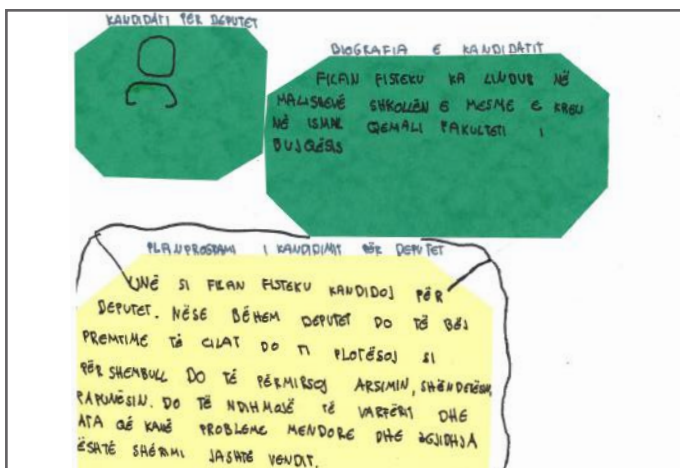 KANDIDATI PËR DEPUTET
BIOGRAFIA E KANDIDATIT
FILAN FISTEKU KA LINDUR NË
MALISHEVË SHKOLLËN E MESME E KREU
NË ISMAIL QEMALI FAKULTETI I
BUJQËSIS
PLANPROGRAMI I KANDIDIMIT PËR DEPUTET
UNË SI FILAN FISTEKU KANDIDOJ PËR
DEPUTET. NËSE BËHEM DEPUTET DO TË BËJ
PREMTIME TË CILAT DO TI PLOTËSOJ SI
PËR SHEMBULL DO TË PËRMIRSOJ ARSIMIN, SHËNDETËSIN,
PAPUNËSIN. DO TË NDIHMOJË TË VARFËRIT DHE
ATA QË KANË PROBLEME MENDORE DHE ZGJIDHJA
ËSHTË SHËRIMI JASHTË VENDIT.